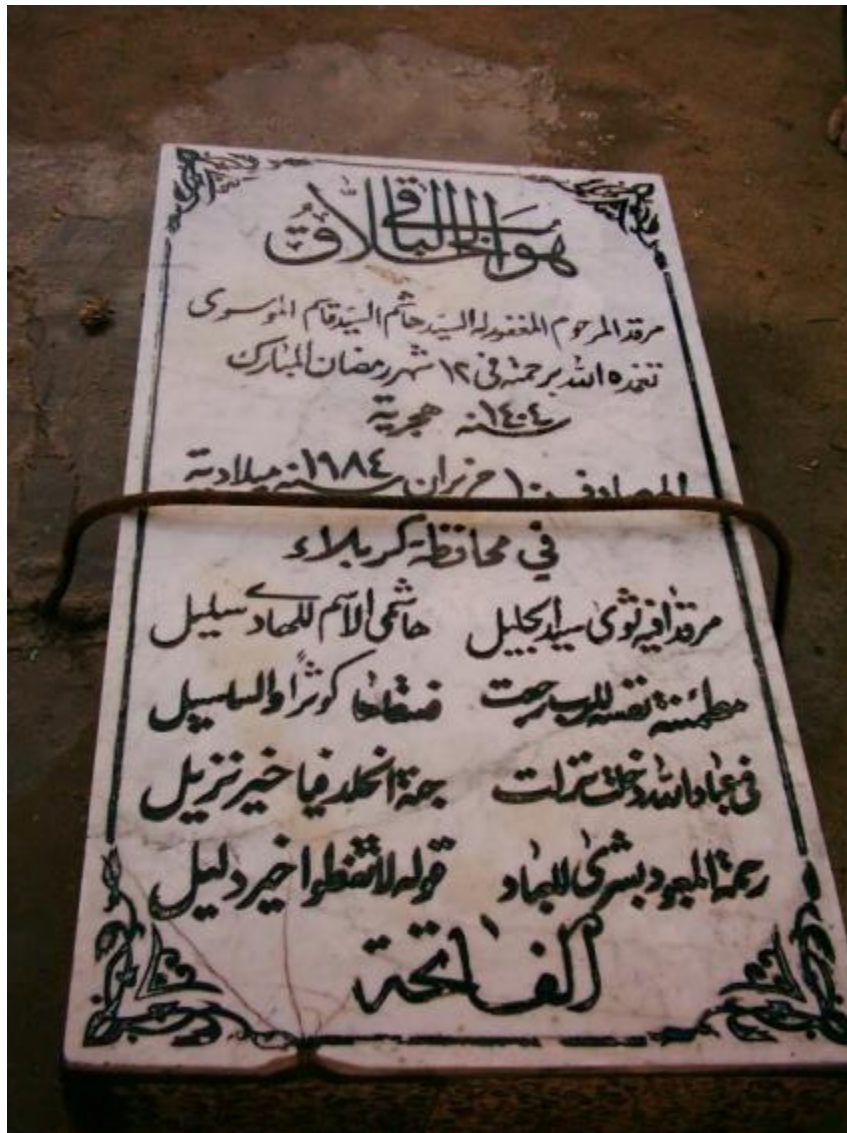 هو الخلاق الباقي
مرقد المرحوم المغفور له السيد هاشم السيد قاسم الموسوي
تغمده الله برحمته في ١٢ شهر رمضان المبارك
سنة ١٤٠٤ هجرية
المصادف حزيران سنة ١٩٨٤ ميلادية
في محافظة كربلاء
مرقد فيه ثوى سيد الجليل هاشمي الاسم للهادي سليل
مطمئنة نفسه للرب رجعت فسقاها كوثرا والسلسبيل
في عباد الله دخلت نزلت جنة الخلد فيا خير نزيل
رحمة المعبود بشرى للعباد قوله لا تقنطوا خير دليل
الفاتحة